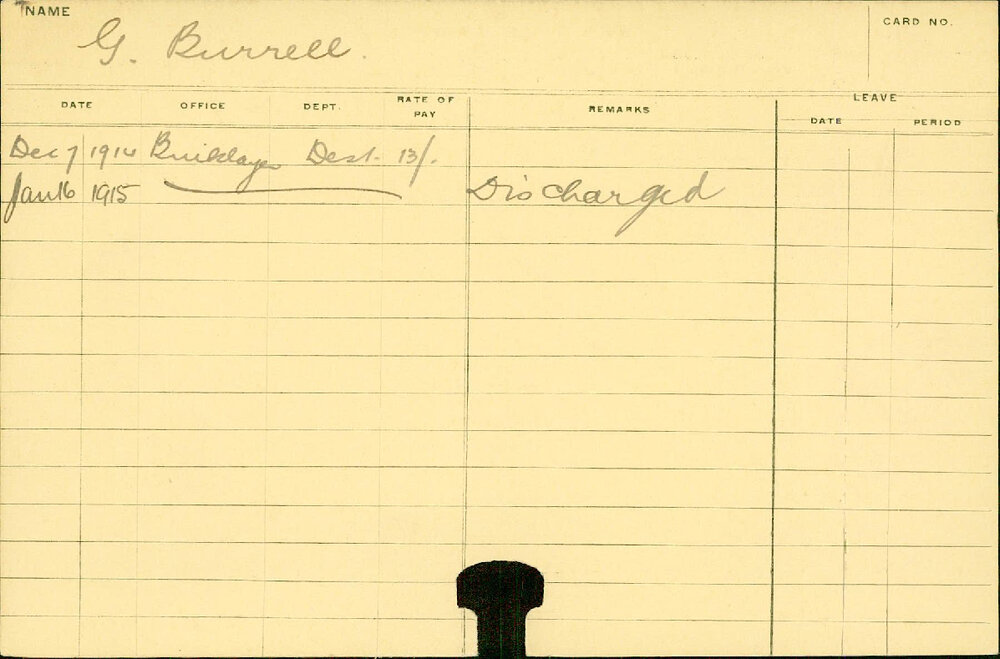 NAME
G. Burrell.
CARD NO.
DATE OFFICE DEPT. RATE OF PAY REMARKS LEAVE
DATE PERIOD
Dec 7 1914 Bricklayer Dest. 13/.
Jan 16 1915 Discharged